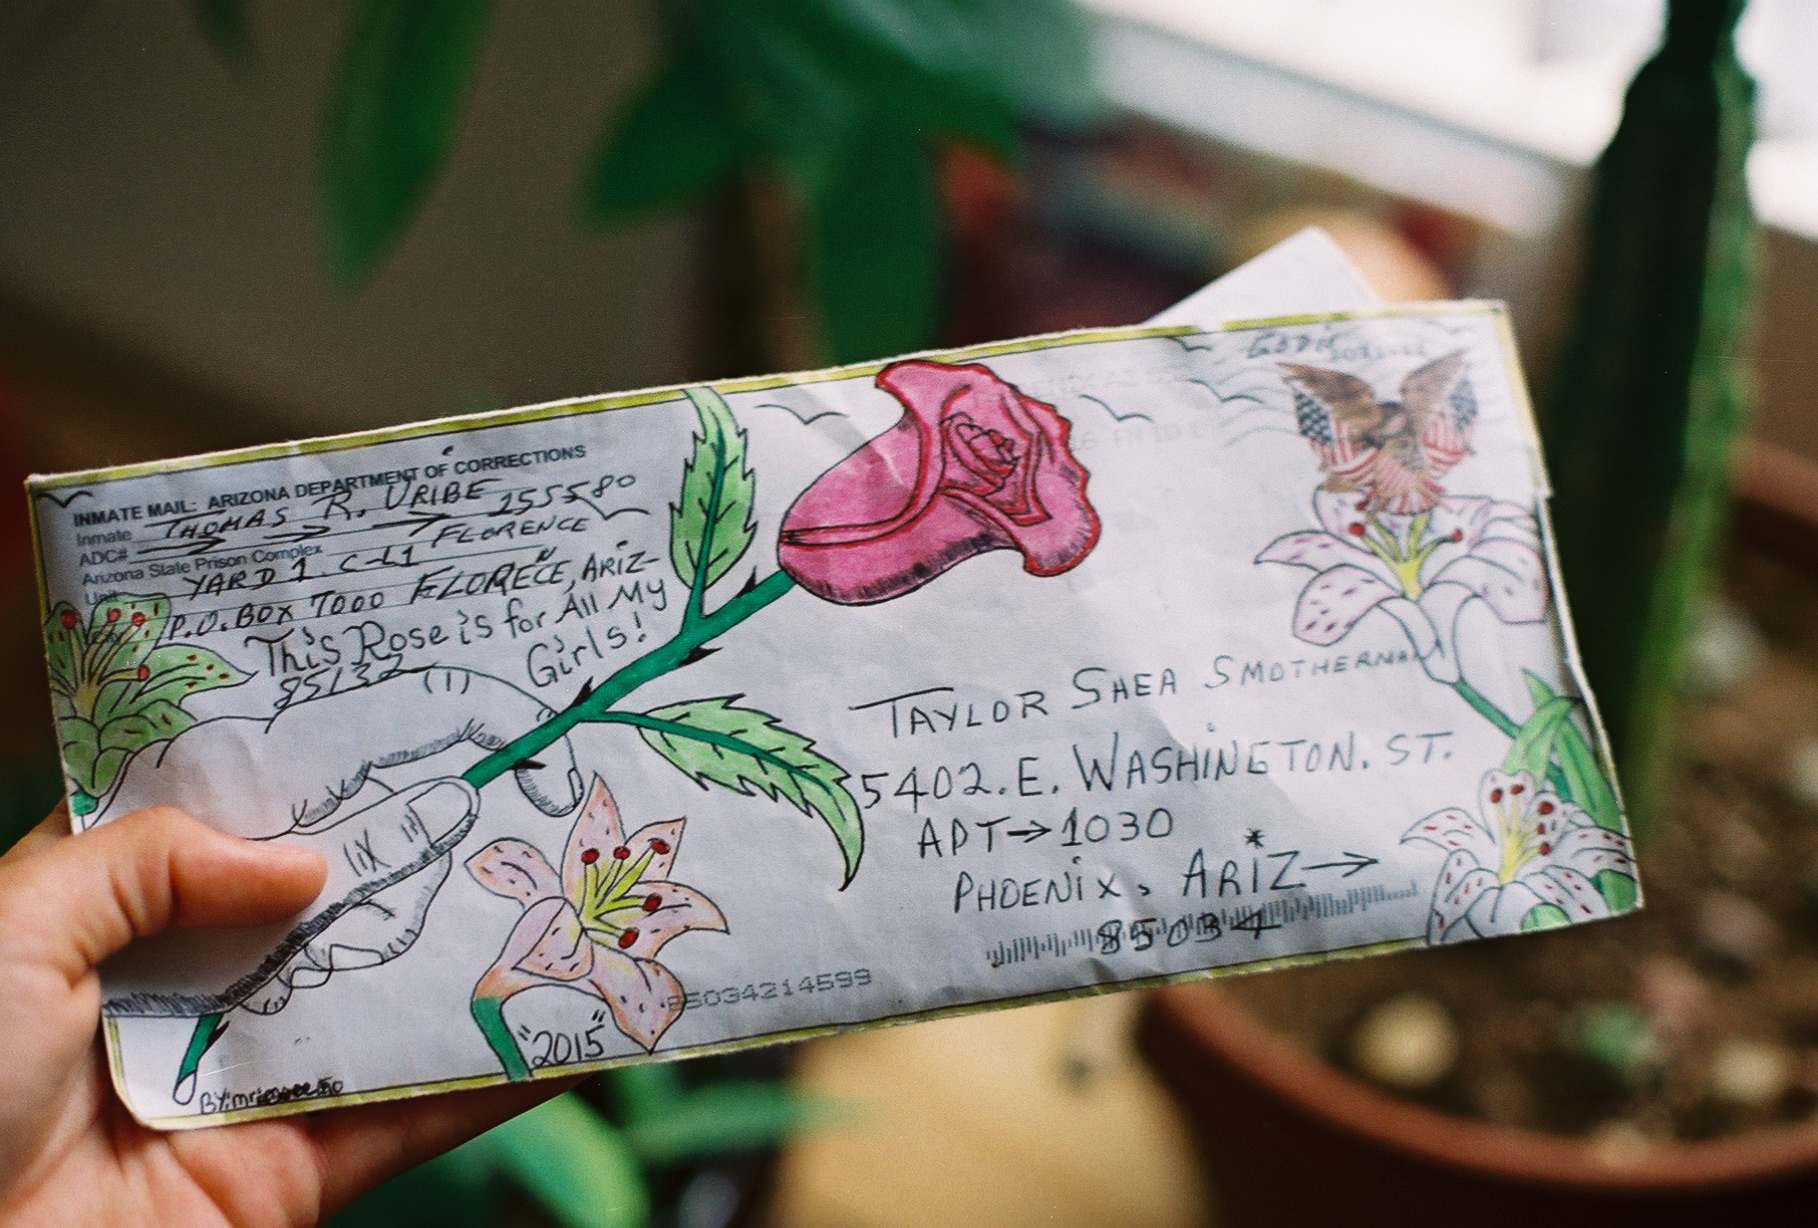 INMATE MAIL: ARIZONA DEPARTMENT OF CORRECTIONS
Inmate THOMAS R. URIBE 255580
ADC#
Arizona State Prison Complex FLORENCE
Unit YARD 1. C-L1
P.O. BOX 7000 FLORECE, ARIZ-
This Rose is for All My
Girls!
85132
TAYLOR SHEA SMOTHERMAN
5402. E. WASHINGTON. ST.
APT→1030
PHOENiX, ARiZ→
85034
85034214599
"2015"
BY: